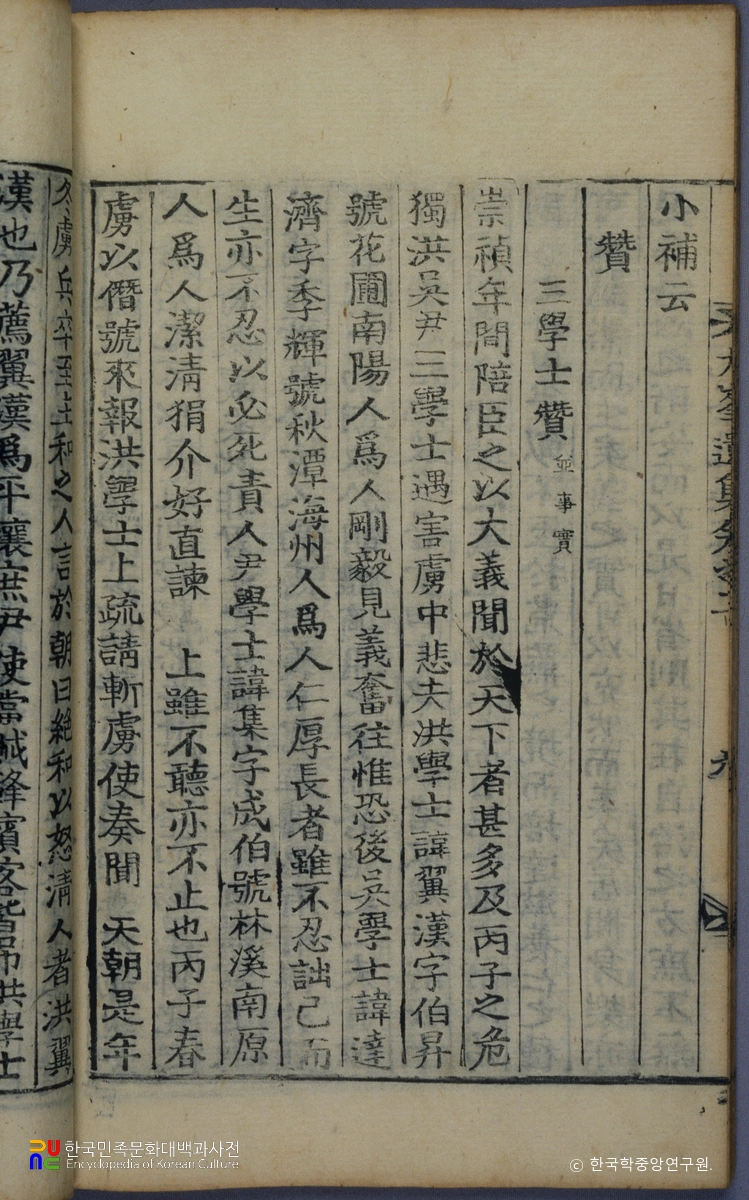 小補云
贊
三學士贊 並事實
崇禎年間陪臣之以大義聞於天下者甚多及丙子之危
獨洪吳尹三學士遇害虜中悲夫洪學士諱翼漢字伯昇
號花圃南陽人爲人剛毅見義奮往惟恐後吳學士諱達
濟字季輝號秋潭海州人爲人仁厚長者雖不忍詘己而
生亦不忍以必死責人尹學士諱集字成伯號林溪南原
人爲人潔清狷介好直諫 上雖不聽亦不止也丙子春
虜以僭號來報洪學士上疏請斬虜使奏聞 天朝是年
冬虜兵卒至主和之人言於朝曰絶和以怒淸人者洪翼
漢也乃薦翼漢爲平壤庶尹使當賊鋒賓客皆吊洪學士
한국민족문화대백과사전
Encyclopedia of Korean Culture
ⓒ 한국학중앙연구원.